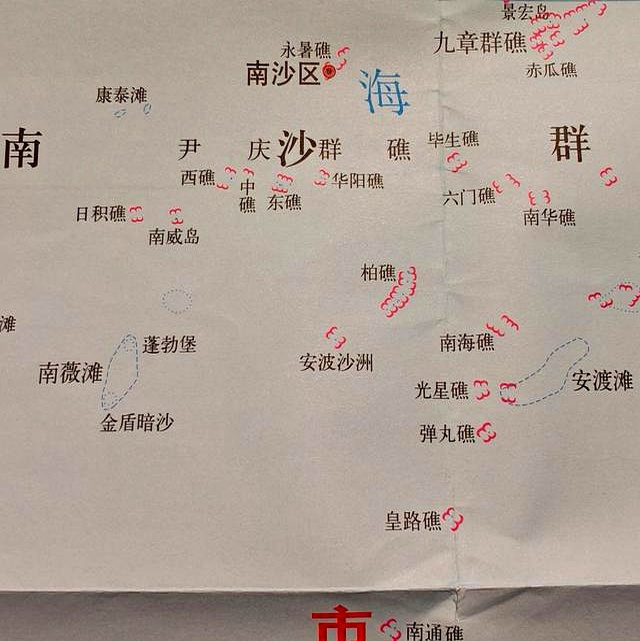 景宏岛
九章群礁
永暑礁
南沙区
赤瓜礁
海
康泰滩
南 沙 群
尹庆群礁
毕生礁
西礁
中礁
东礁
华阳礁
六门礁
日积礁
南威岛
南华礁
柏礁
滩
蓬勃堡
南薇滩
安波沙洲
南海礁
安渡滩
光星礁
金盾暗沙
弹丸礁
皇路礁
市
南通礁